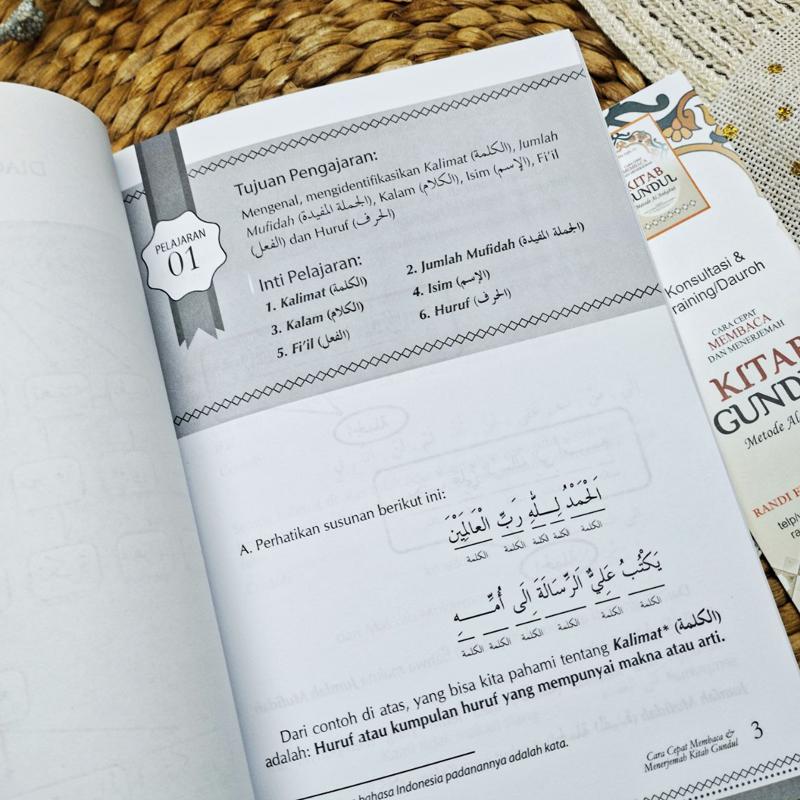 PELAJARAN
01
Tujuan Pengajaran:
Mengenal, mengidentifikasikan Kalimat (الكلمة), Jumlah
Mufidah (الجملة المفيدة), Kalam (الكلام), Isim (الإسم), Fi'il
(الفعل) dan Huruf (الحرف)
Inti Pelajaran:
1. Kalimat (الكلمة)
2. Jumlah Mufidah (الجملة المفيدة)
3. Kalam (الكلام)
4. Isim (الإسم)
5. Fi'il (الفعل)
6. Huruf (الحرف)
A. Perhatikan susunan berikut ini:
اَلْحَمْدُ لِلّٰهِ رَبِّ الْعَالَمِيْنَ
الكلمة الكلمة الكلمة الكلمة الكلمة
يَكْتُبُ عَلِيٌّ اَلرِّسَالَةَ اِلَى أُمِّهِ
الكلمة الكلمة الكلمة الكلمة الكلمة الكلمة
Dari contoh di atas, yang bisa kita pahami tentang Kalimat* (الكلمة)
adalah: Huruf atau kumpulan huruf yang mempunyai makna atau arti.
bahasa Indonesia padanannya adalah kata.
Cara Cepat Membaca &
Menerjemah Kitab Gundul
3
KITAB
GUNDUL
Konsultasi &
raining/Dauroh
CARA CEPAT
MEMBACA
DAN MENERJEMAH
KITAB
GUNDU
Metode Al
RANDI F
telp/